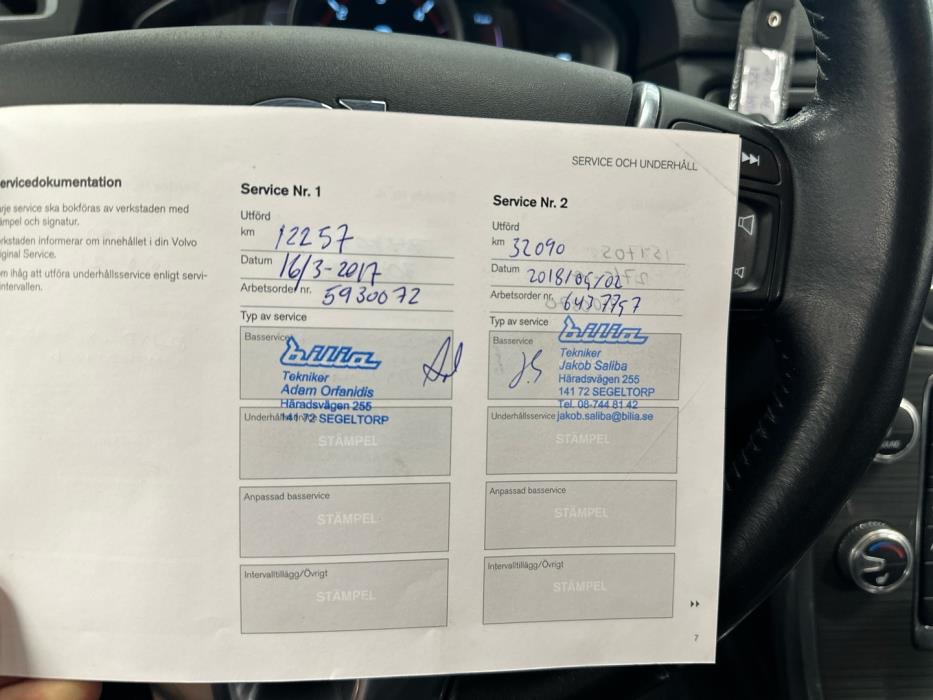 SERVICE OCH UNDERHÅLL
ervicedokumentation
rje service ska bokföras av verkstaden med
impel och signatur.
rkstaden informerar om innehållet i din Volvo
iginal Service.
m ihåg att utföra underhållsservice enligt servi-
intervallen.
Service Nr. 1
Utförd
km 12257
Datum 16/3-2017
Arbetsorder nr. 5930072
Typ av service
Basservice
Bilia
Tekniker
Adam Orfanidis
Häradsvägen 255
141 72 SEGELTORP
STÄMPEL
Anpassad basservice
STÄMPEL
Intervalltillägg/Övrigt
STÄMPEL
Service Nr. 2
Utförd
km 32090
Datum 2018/05/02
Arbetsorder nr. 6437757
Typ av service
Basservice
JS
Bilia
Tekniker
Jakob Saliba
Häradsvägen 255
141 72 SEGELTORP
Tel. 08-744 81 42
Underhållsservice jakob.saliba@bilia.se
STÄMPEL
Anpassad basservice
STÄMPEL
Intervalltillägg/Övrigt
STÄMPEL
7